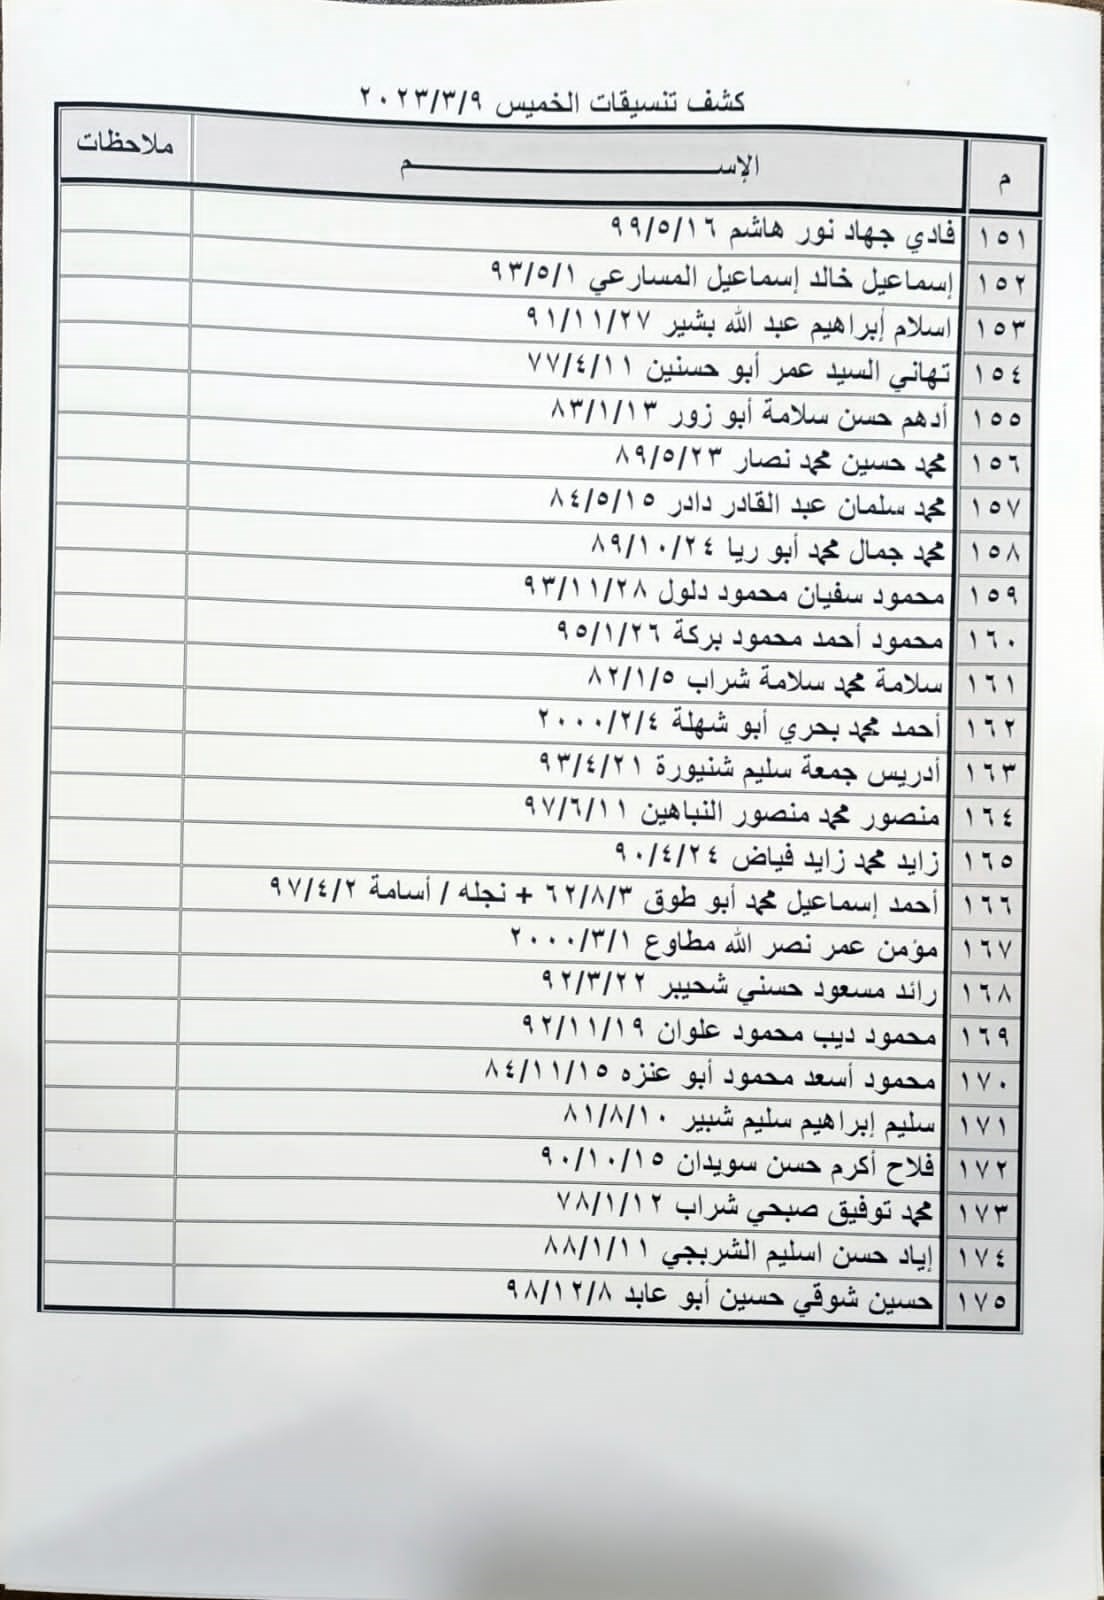 كشف تنسيقات الخميس ٢٠٢٣/٣/٩
م الإســـــــــم ملاحظات
١٥١ فادي جهاد نور هاشم ٩٩/٥/١٦
١٥٢ إسماعيل خالد إسماعيل المسارعي ٩٣/٥/١
١٥٣ اسلام إبراهيم عبد الله بشير ٩١/١١/٢٧
١٥٤ تهاني السيد عمر أبو حسنين ٧٧/٤/١١
١٥٥ أدهم حسن سلامة أبو زور ٨٣/١/١٣
١٥٦ محمد حسين محمد نصار ٨٩/٥/٢٣
١٥٧ محمد سلمان عبد القادر دادر ٨٤/٥/١٥
١٥٨ محمد جمال محمد أبو ريا ٨٩/١٠/٢٤
١٥٩ محمود سفيان محمود دلول ٩٣/١١/٢٨
١٦٠ محمود أحمد محمود بركة ٩٥/١/٢٦
١٦١ سلامة محمد سلامة شراب ٨٢/١/٥
١٦٢ أحمد محمد بحري أبو شهلة ٢٠٠٠/٢/٤
١٦٣ أدريس جمعة سليم شنيورة ٩٣/٤/٢١
١٦٤ منصور محمد منصور النباهين ٩٧/٦/١١
١٦٥ زايد محمد زايد فياض ٩٠/٤/٢٤
١٦٦ أحمد إسماعيل محمد أبو طوق ٦٢/٨/٣ + نجله / أسامة ٩٧/٤/٢
١٦٧ مؤمن عمر نصر الله مطاوع ٢٠٠٠/٣/١
١٦٨ رائد مسعود حسني شحيبر ٩٢/٣/٢٢
١٦٩ محمود ديب محمود علوان ٩٢/١١/١٩
١٧٠ محمود أسعد محمود أبو عنزه ٨٤/١١/١٥
١٧١ سليم إبراهيم سليم شبير ٨١/٨/١٠
١٧٢ فلاح أكرم حسن سويدان ٩٠/١٠/١٥
١٧٣ محمد توفيق صبحي شراب ٧٨/١/١٢
١٧٤ إياد حسن اسليم الشربجي ٨٨/١/١١
١٧٥ حسين شوقي حسين أبو عابد ٩٨/١٢/٨